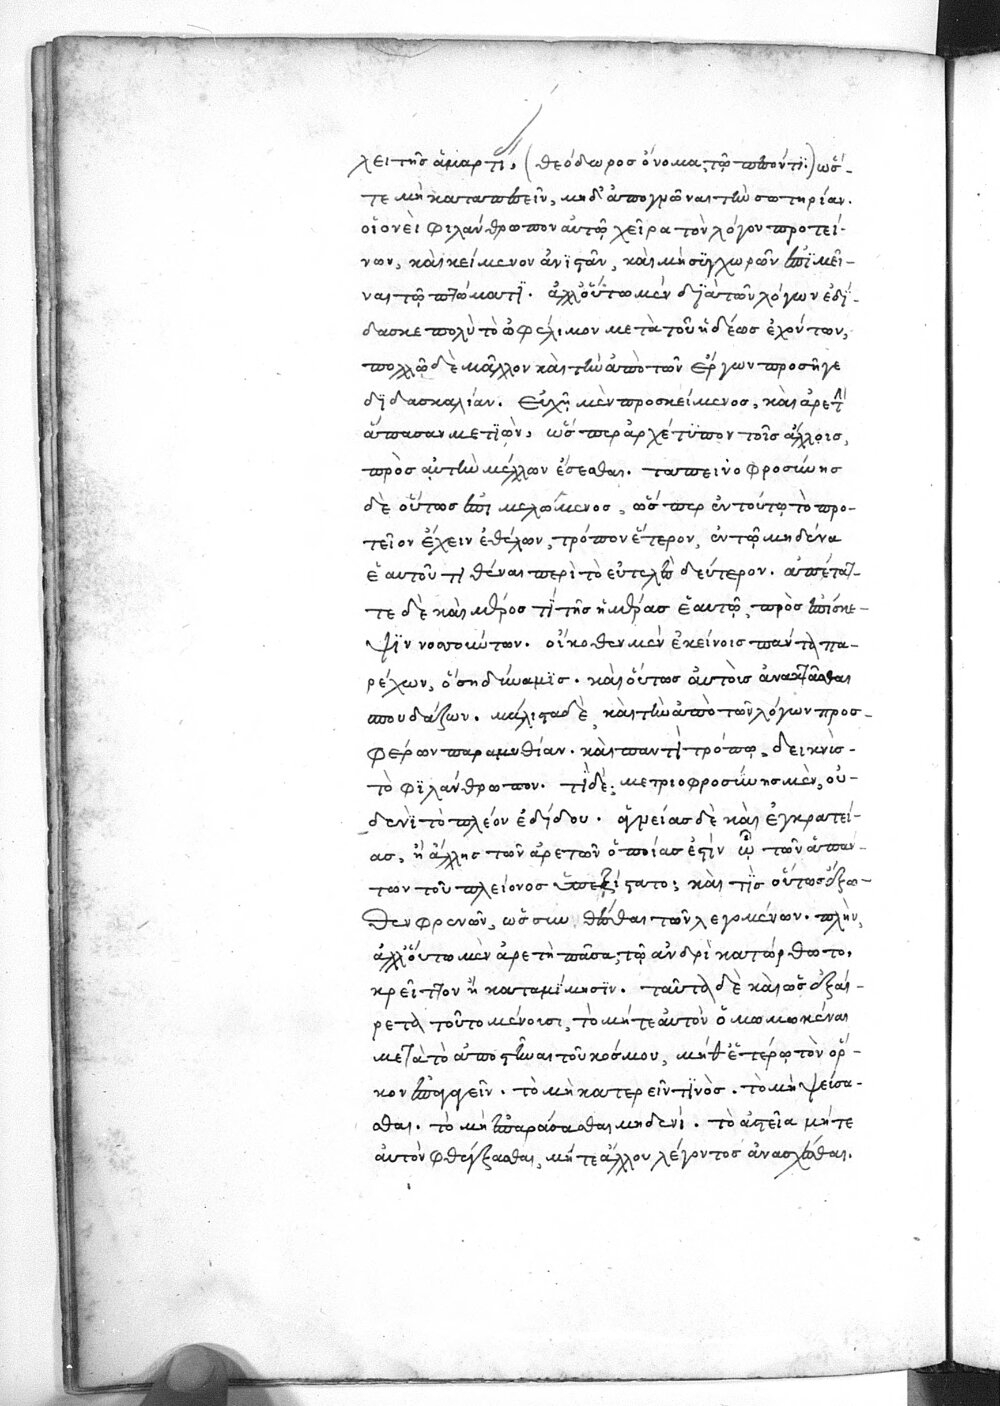 χει τῆς ἁμαρτί, (θεόδωρος ὄνομα τῷ πεσόντι) ὥσ-
τε μὴ καταπεσεῖν, μηδ' ἀπογνῶναι τὴν σωτηρίαν.
οἱονεὶ φιλάνθρωπον αὐτῷ χεῖρα τὸν λόγον προτεί-
νων, καὶ κείμενον ἀνιστᾶν, καὶ μὴ συγχωρῶν ἐπιμεῖ-
ναι τῷ πτώματι. ἀλλ' οὕτω μὲν διὰ τῶν λόγων ἐδί-
δασκε πολὺ τὸ ὠφέλιμον μετὰ τοῦ ἡδέως ἐχόντων,
πολλῷ δὲ μᾶλλον καὶ τὴν ἀπὸ τῶν ἔργων προσῆγε
διδασκαλίαν. εὐχῇ μὲν προσκείμενος, καὶ ἀρετὴν
ἅπασαν μετιών, ὥσπερ ἀρχέτυπον τοῖς ἄλλοις,
πρὸς αὐτὴν μέλλων ἔσεσθαι. ταπεινοφροσύνης
δὲ οὕτως ἐπιμελόμενος, ὥσπερ ἐν τούτῳ τὸ πρω-
τεῖον ἔχειν ἐθέλων, τρόπον ἕτερον, ἐν τῷ μηδένα
ἑαυτοῦ τιθέναι περὶ τὸ εὐτελὲς δεύτερον. ἀπέτατ-
τε δὲ καὶ μέρος τι τῆς ἡμέρας ἑαυτῷ, πρὸς ἐπίσκε-
ψιν νοσούντων. οἴκοθεν μὲν ἐκείνοις πάντα πα-
ρέχων, ὅση δύναμις. καὶ οὕτως αὐτοὺς ἀνακτᾶσθαι
σπουδάζων. μάλιστα δὲ καὶ τὴν ἀπὸ τῶν λόγων προσ-
φέρων παραμυθίαν. καὶ παντὶ τρόπῳ δεικνὺς
τὸ φιλάνθρωπον. τί δέ; μετριοφροσύνης μὲν, οὐ-
δενὶ τὸ πλέον ἐδίδου. ἁγνείας δὲ καὶ ἐγκρατεί-
ας, ἢ ἄλλης τῶν ἀρετῶν ὁποίας ἐστὶν ᾧ τῶν ἁπάν-
των τοῦ πλείονος ἐξίστατο; καὶ τίς οὕτως ἔξω-
θεν φρενῶν, ὥς συνθέσθαι τῶν λεγομένων. πλὴν
ἀλλ' οὕτω μὲν ἀρετὴ πᾶσα τῷ ἀνδρὶ κατώρθωτο,
κρεῖττον ἢ κατὰ μίμησιν. ταῦτα δὲ καὶ ὡς ἐξαί-
ρετα τούτῳ μένουσι, τὸ μήτε αὐτὸν ὀμωμοκέναι
μετὰ τὸ ἀποστῆναι τοῦ κόσμου, μήθ' ἑτέρῳ τὸν ὅρ-
κον ἐπάγειν. τὸ μὴ κατερεῖν τινὸς. τὸ μὴ ψεύσα-
σθαι. τὸ μὴ ἐπαράσασθαι μηδενί. τὸ ἀστεῖα μήτε
αὐτὸν φθέγξασθαι, μήτε ἄλλου λέγοντος ἀνασχέσθαι.